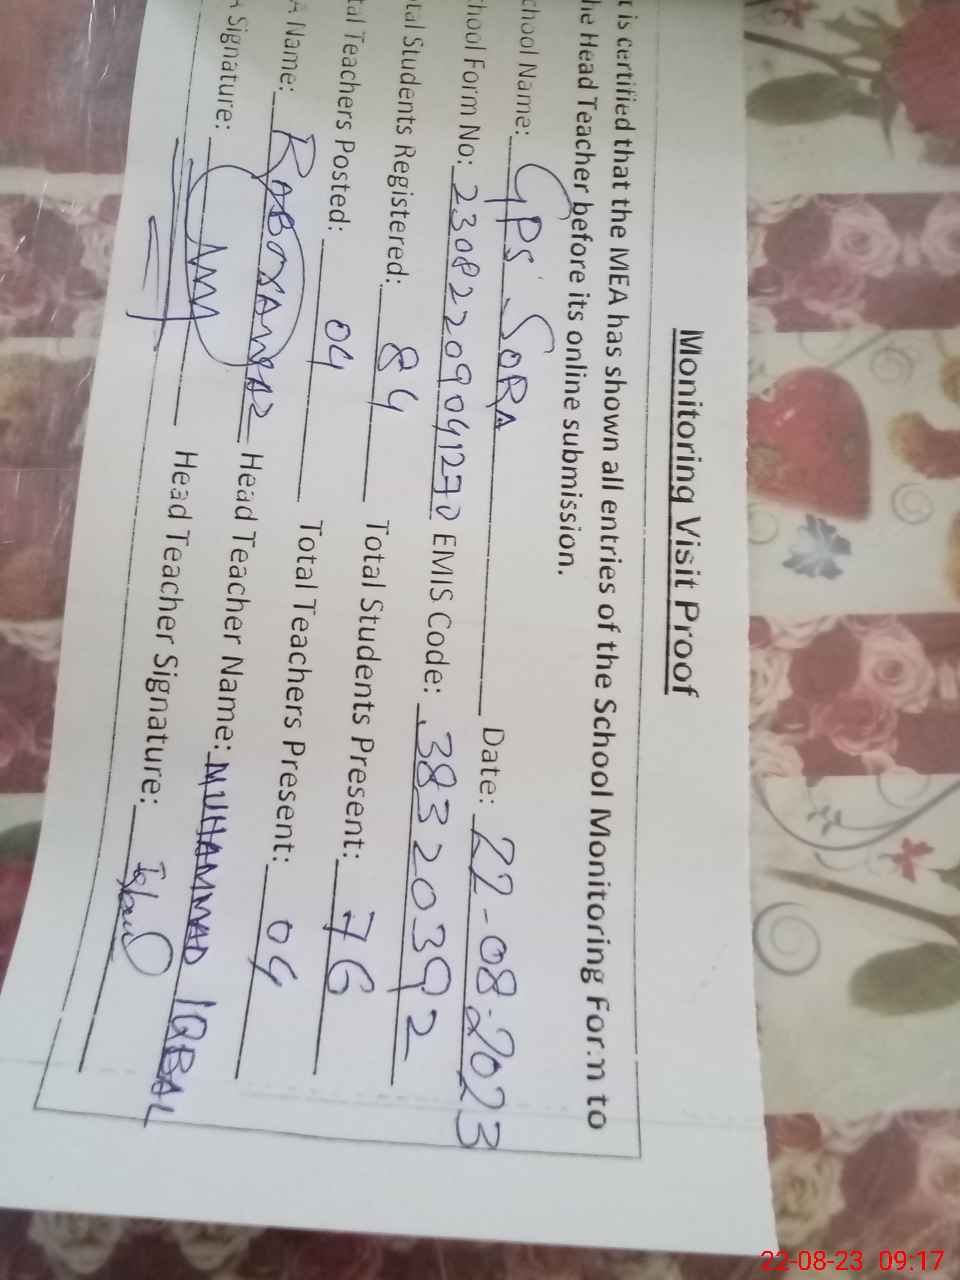 Monitoring Visit Proof
t is certified that the MEA has shown all entries of the School Monitoring Form to
he Head Teacher before its online submission.
chool Name: GPS SORA Date: 22-08-2023
chool Form No: 23082209041270 EMIS Code: 38320392
tal Students Registered: 84 Total Students Present: 76
tal Teachers Posted: 04 Total Teachers Present: 04
A Name: Head Teacher Name: MUHAMMAD IQBAL
A Signature: Head Teacher Signature:
22-08-23 09:17